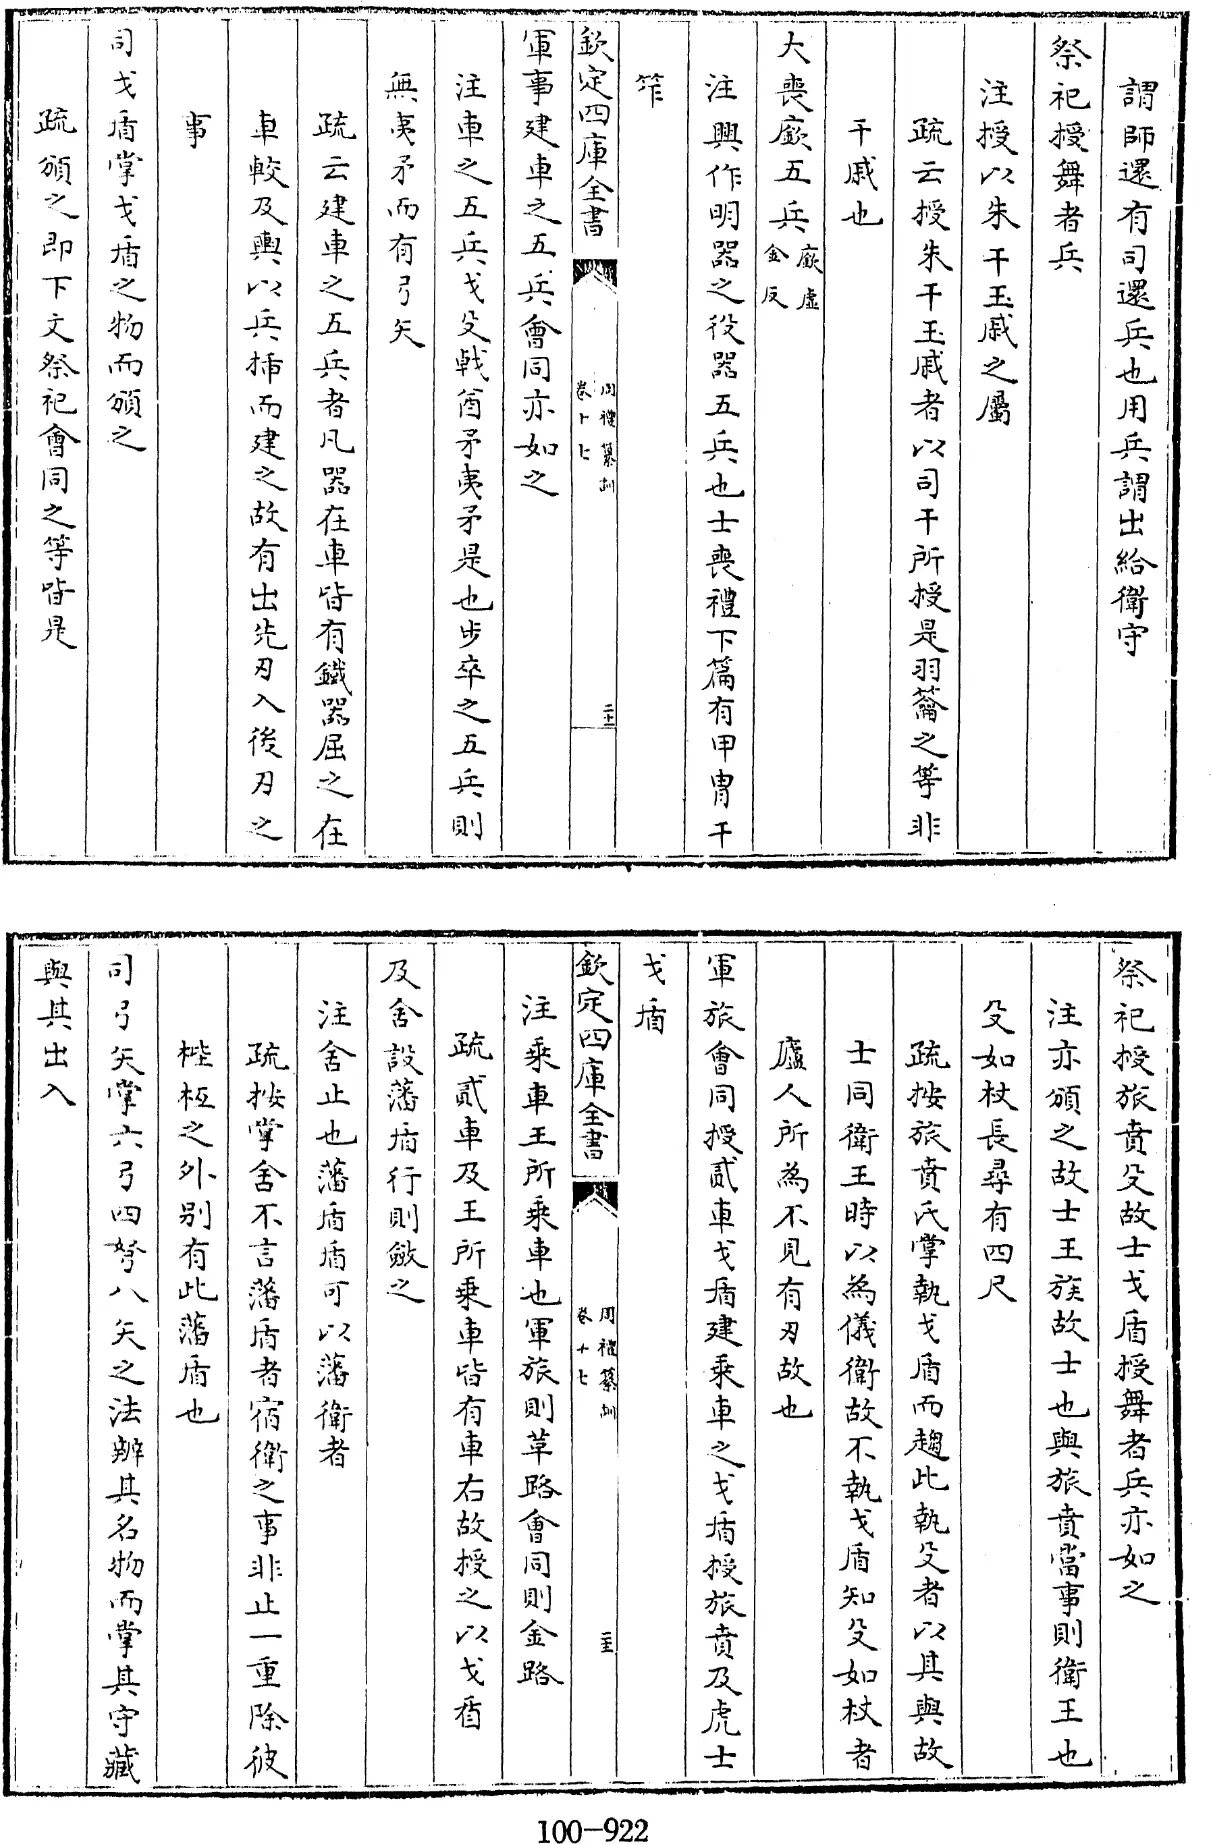 謂師還有司還兵也用兵謂出給衛守
祭祀授舞者兵
注授以朱干玉戚之屬
疏云授朱干玉戚者以司干所授是羽籥之等非
干戚也
大喪廞五兵廞虛金反
注興作明器之役器五兵也士喪禮下篇有甲冑干
笮
欽定四庫全書
周禮纂訓
卷十七
二十二
軍事建車之五兵會同亦如之
注車之五兵戈殳戟酋矛夷矛是也步卒之五兵則
無夷矛而有弓矢
疏云建車之五兵者凡器在車皆有鐵器屈之在
車較及輿以兵揷而建之故有出先刃入後刃之
事
司戈盾掌戈盾之物而頒之
疏頒之即下文祭祀會同之等皆是
祭祀授旅賁殳故士戈盾授舞者兵亦如之
注亦頒之故士王族故士也與旅賁當事則衛王也
殳如杖長尋有四尺
疏按旅賁氏掌執戈盾而趨此執殳者以其與故
士同衛王時以為儀衛故不執戈盾知殳如杖者
廬人所為不見有刃故也
軍旅會同授貳車戈盾建乘車之戈盾授旅賁及虎士
戈盾
欽定四庫全書
周禮纂訓
卷十七
二十三
注乘車王所乘車也軍旅則革路會同則金路
疏貳車及王所乘車皆有車右故授之以戈盾
及舍設藩盾行則斂之
注舍止也藩盾盾可以藩衛者
疏按掌舍不言藩盾者宿衛之事非止一重除彼
梐枑之外別有此藩盾也
司弓矢掌六弓四弩八矢之法辨其名物而掌其守藏
與其出入
100-922